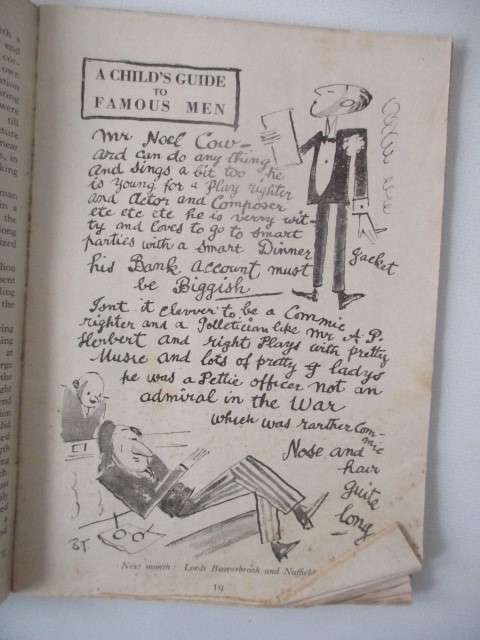 A CHILD'S GUIDE
TO
FAMOUS MEN
Mr Noel Cow-
ard can do any thing
and sings a bit too he
is young for a Play righter
and Actor and Composer
etc etc etc he is verry wit-
ty and loves to go to smart
parties with a smart Dinner
Jacket
his Bank account must
be Biggish
Isnt it clevver to be a Commic
righter and a Polletician like Mr A.P.
Herbert and right Plays with pretty
Music and lots of pretty y ladys
he was a Pettie officer not an
admiral in the War
which was rarther Com-
mic
Nose and
hair
quite
long
BT.
Next month: Lords Beaverbrook and Nuffield
19